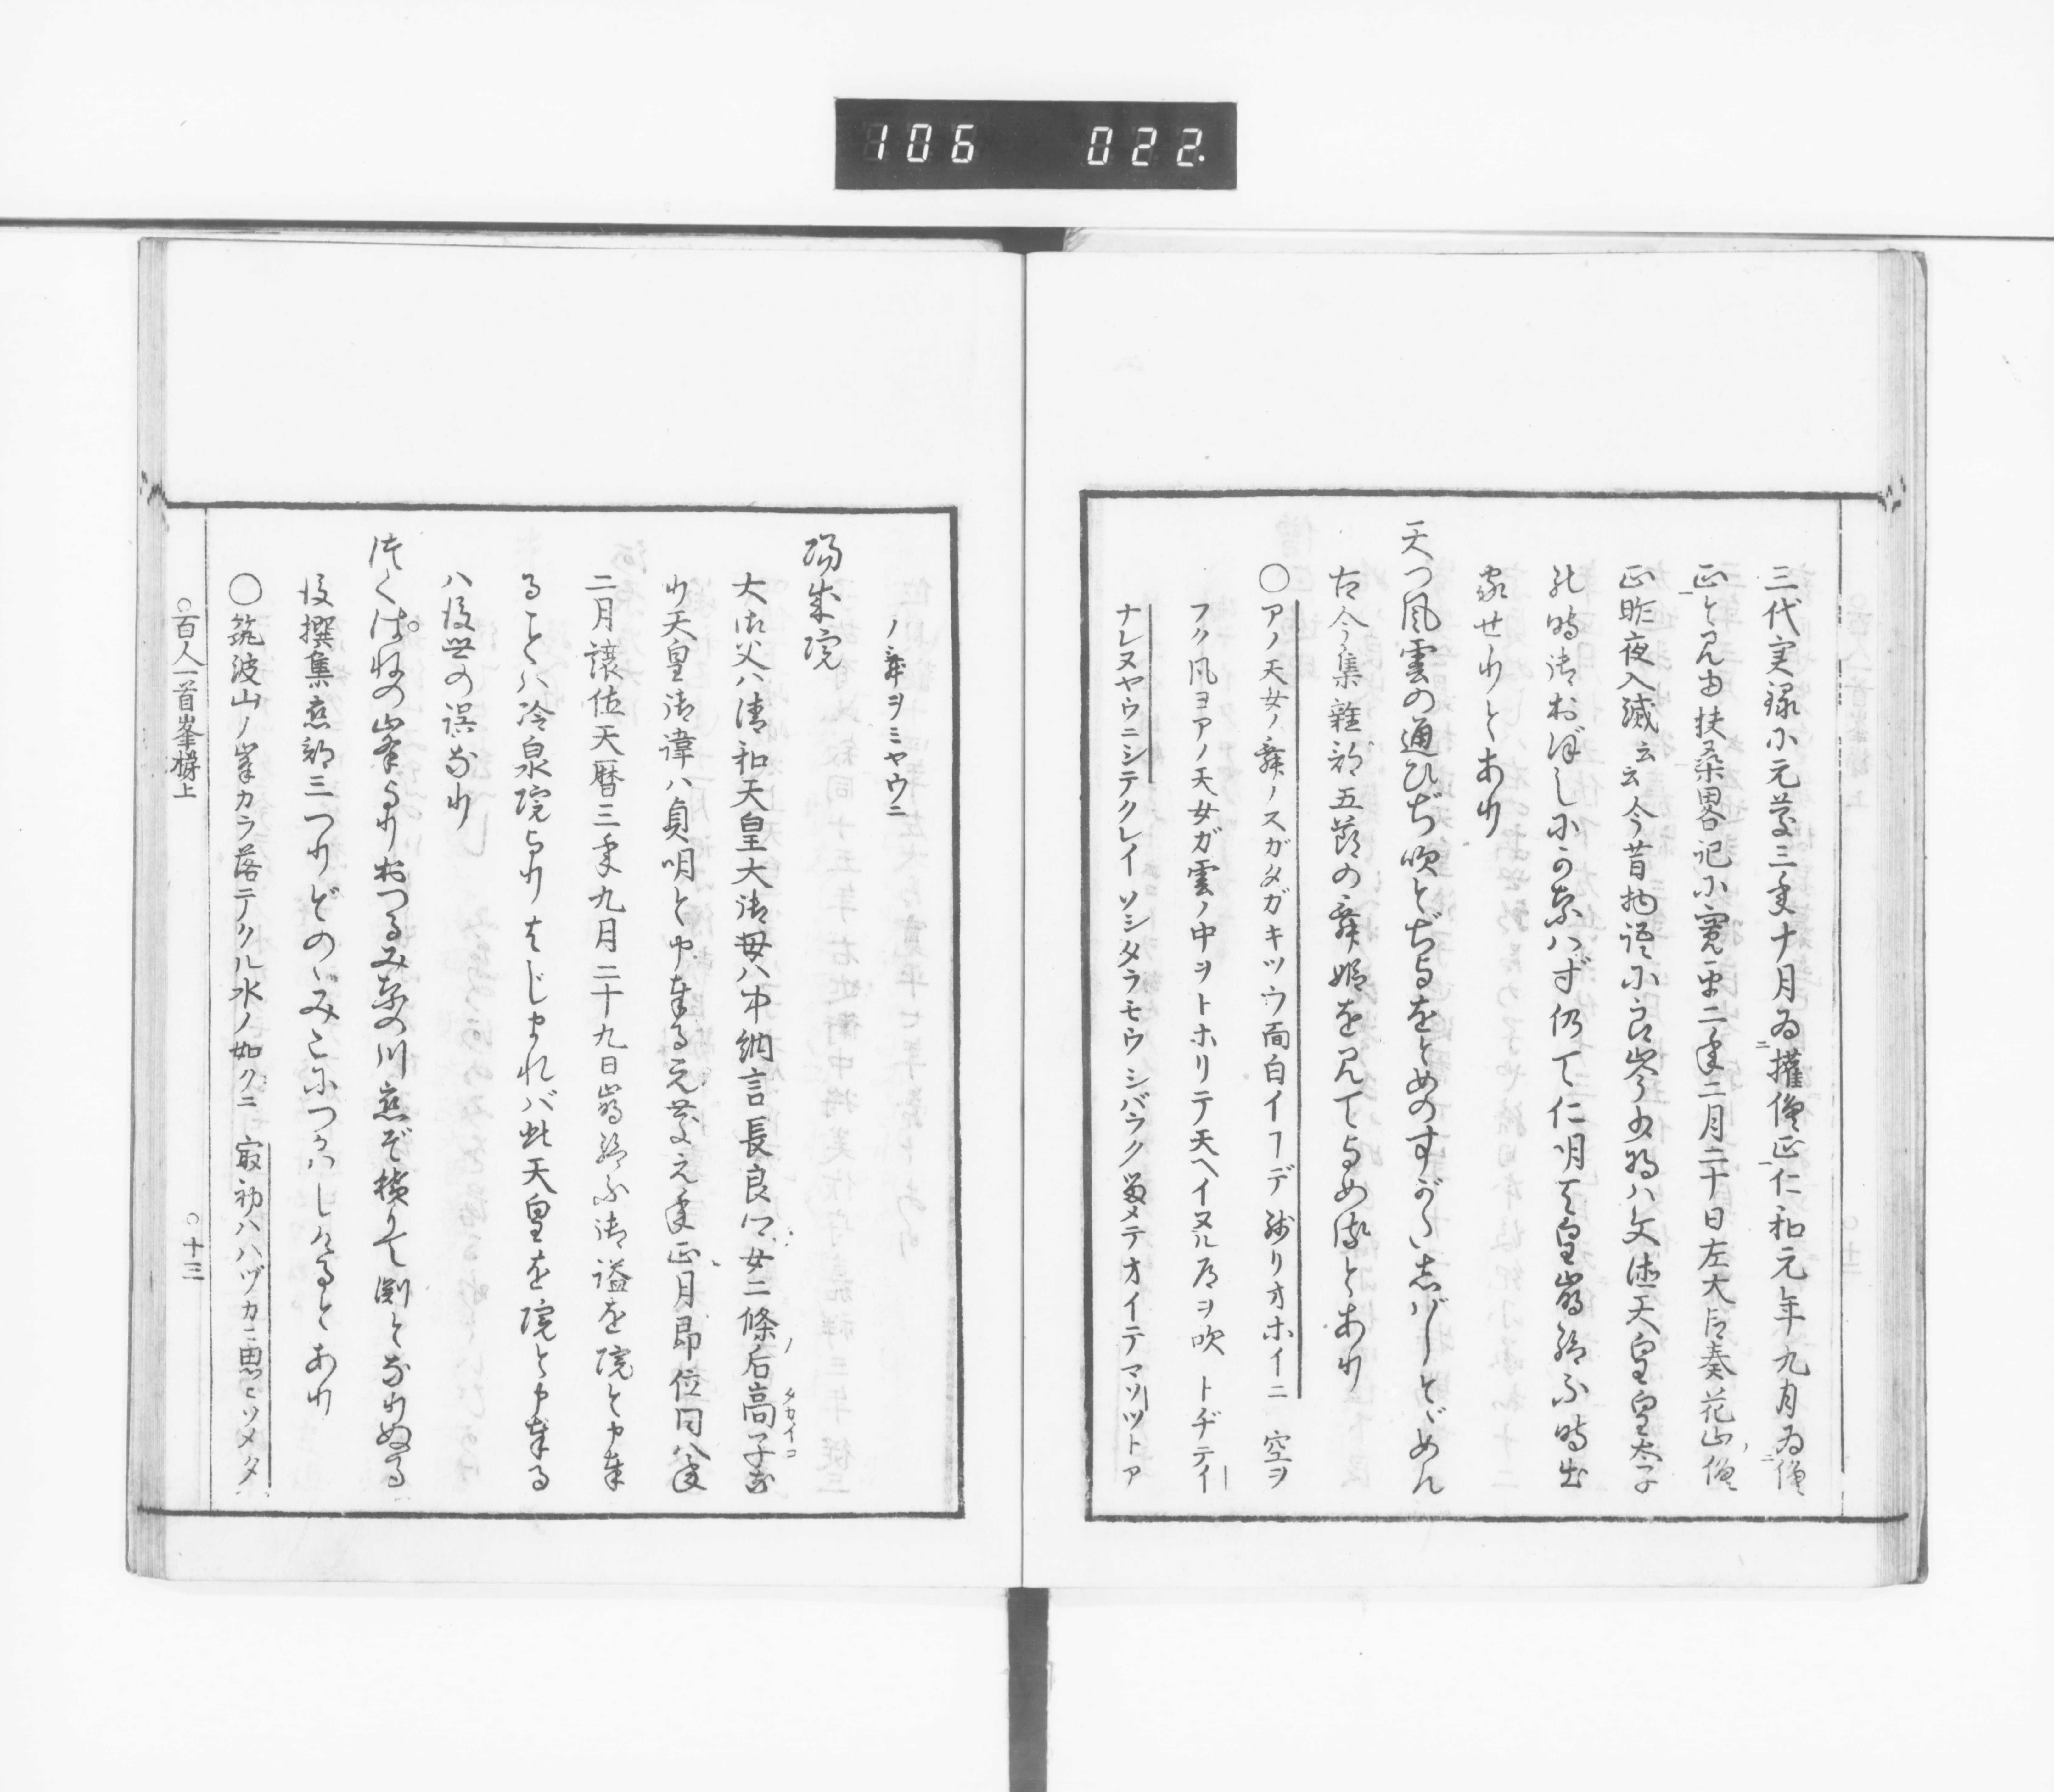 106 022.
三代実録に元慶三年十月為権僧正仁和元年九月為僧
正と見ゆ扶桑畧記に寛平二年二月二十日左大臣奏花山僧
正昨夜入滅云云今昔物語に良岑少将ハ文徳天皇皇太子
の時御おぼしにかなハず仍て仁明天皇崩給ふ時出
家せりとあり
天つ風雲の通ひぢ吹とぢよをとめのすがたしバしとゞめん
古今集雑部五節の舞姫を見てよめるとあり
○アノ天女ノ舞ノスガタガキツウ面白イフデ残リオホイニ 空ヲ
フク風ヨアノ天女ガ雲ノ中ヲトホリテ天ヘイヌル道ヲ吹 トヂテイ
ナレヌヤウニシテクレイ ソシタラモウシバラク留メテオイテマソツトア
ノ舞ヲミヤウニ
陽成院
大御父ハ清和天皇大御母ハ中納言長良公ノ女二條ノ后高子タカイコ也
り天皇御諱ハ貞明と申奉る元慶元年正月即位同八年
二月譲位天暦三年九月二十九日崩給ふ御謚を院と申奉
ることハ冷泉院よりはじまれバ此天皇を院と申奉る
ハ後世の誤なり
つくばねの峯よりおつるみなの川恋ぞ積りて渕となりぬる
後撰集恋部三つりどのゝみこにつかハしけるとあり
○筑波山ノ峯カラ落テクル水ノ如クニ 最初ハハヅカニ思ヒソメタ
○百人一首峯梯上 ○十三